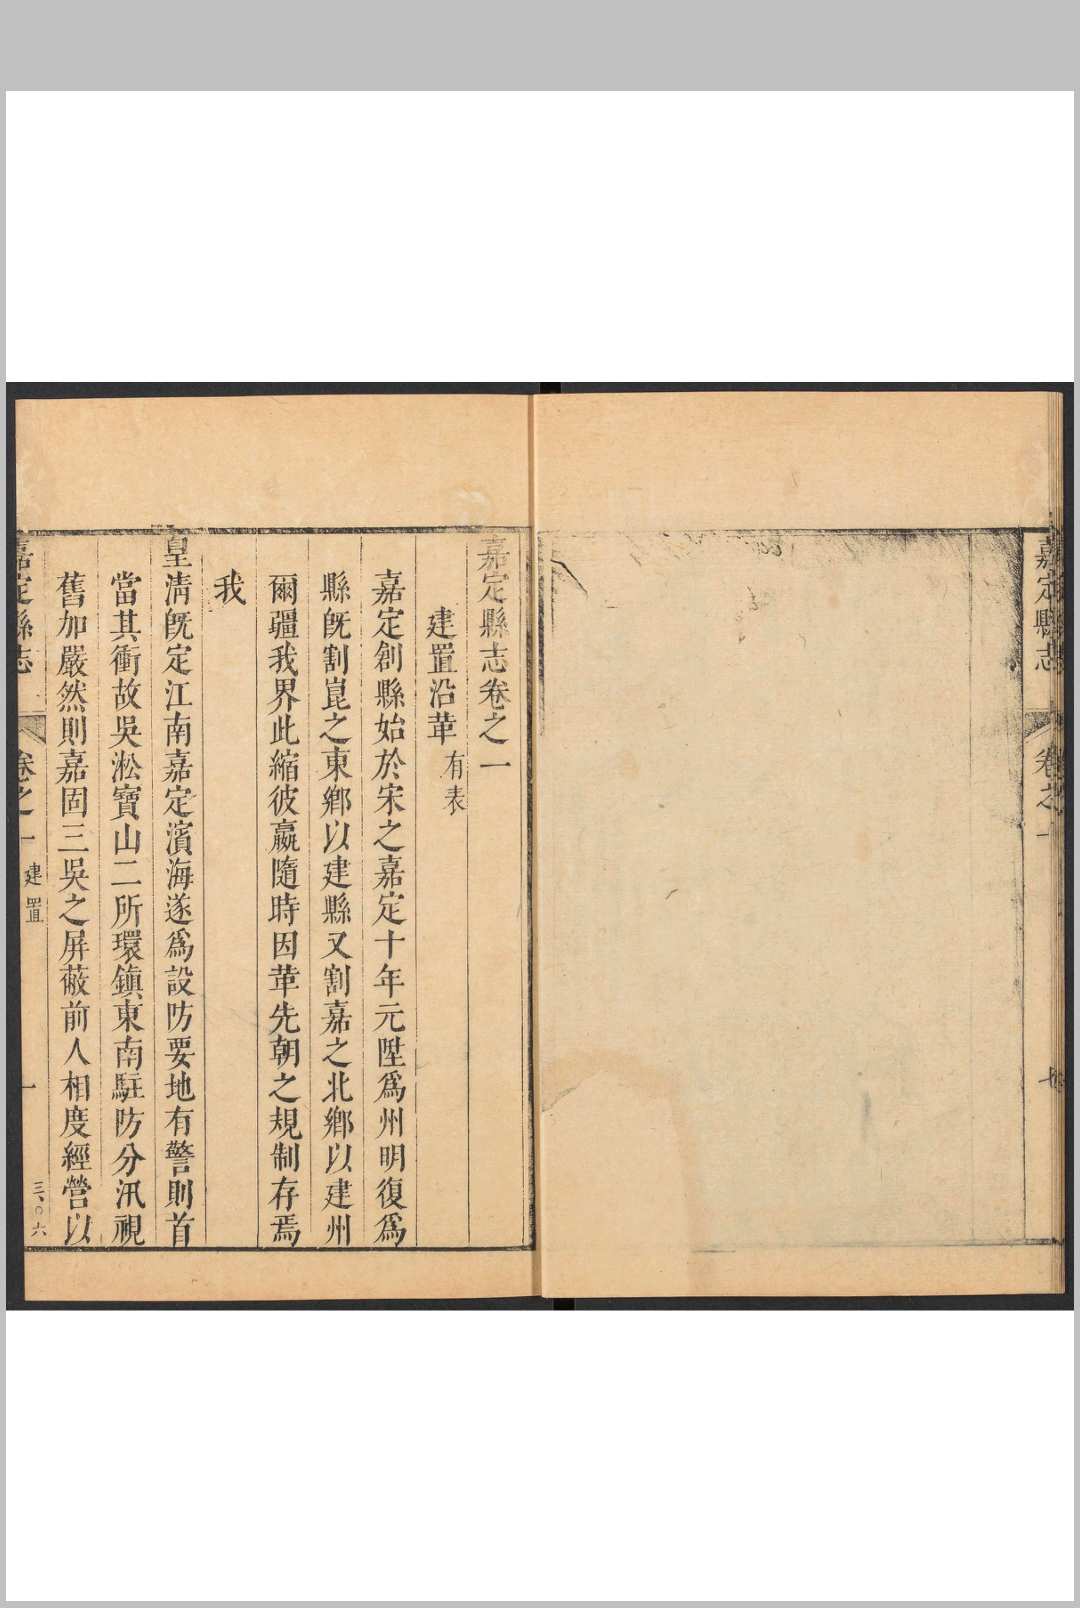 嘉定縣志
卷之一
七
嘉定縣志卷之一
建置沿革 有表
嘉定創縣始於宋之嘉定十年元陞爲州明復爲
縣旣割崑之東鄕以建縣又割嘉之北鄕以建州
爾疆我界此縮彼嬴隨時因革先朝之規制存焉
我
皇淸旣定江南嘉定濱海遂爲設防要地有警則首
當其衝故吳淞寶山二所環鎭東南駐防分汛視
舊加嚴然則嘉固三吳之屏蔽前人相度經營以
嘉定縣志
卷之一
建置
一
三、〇六